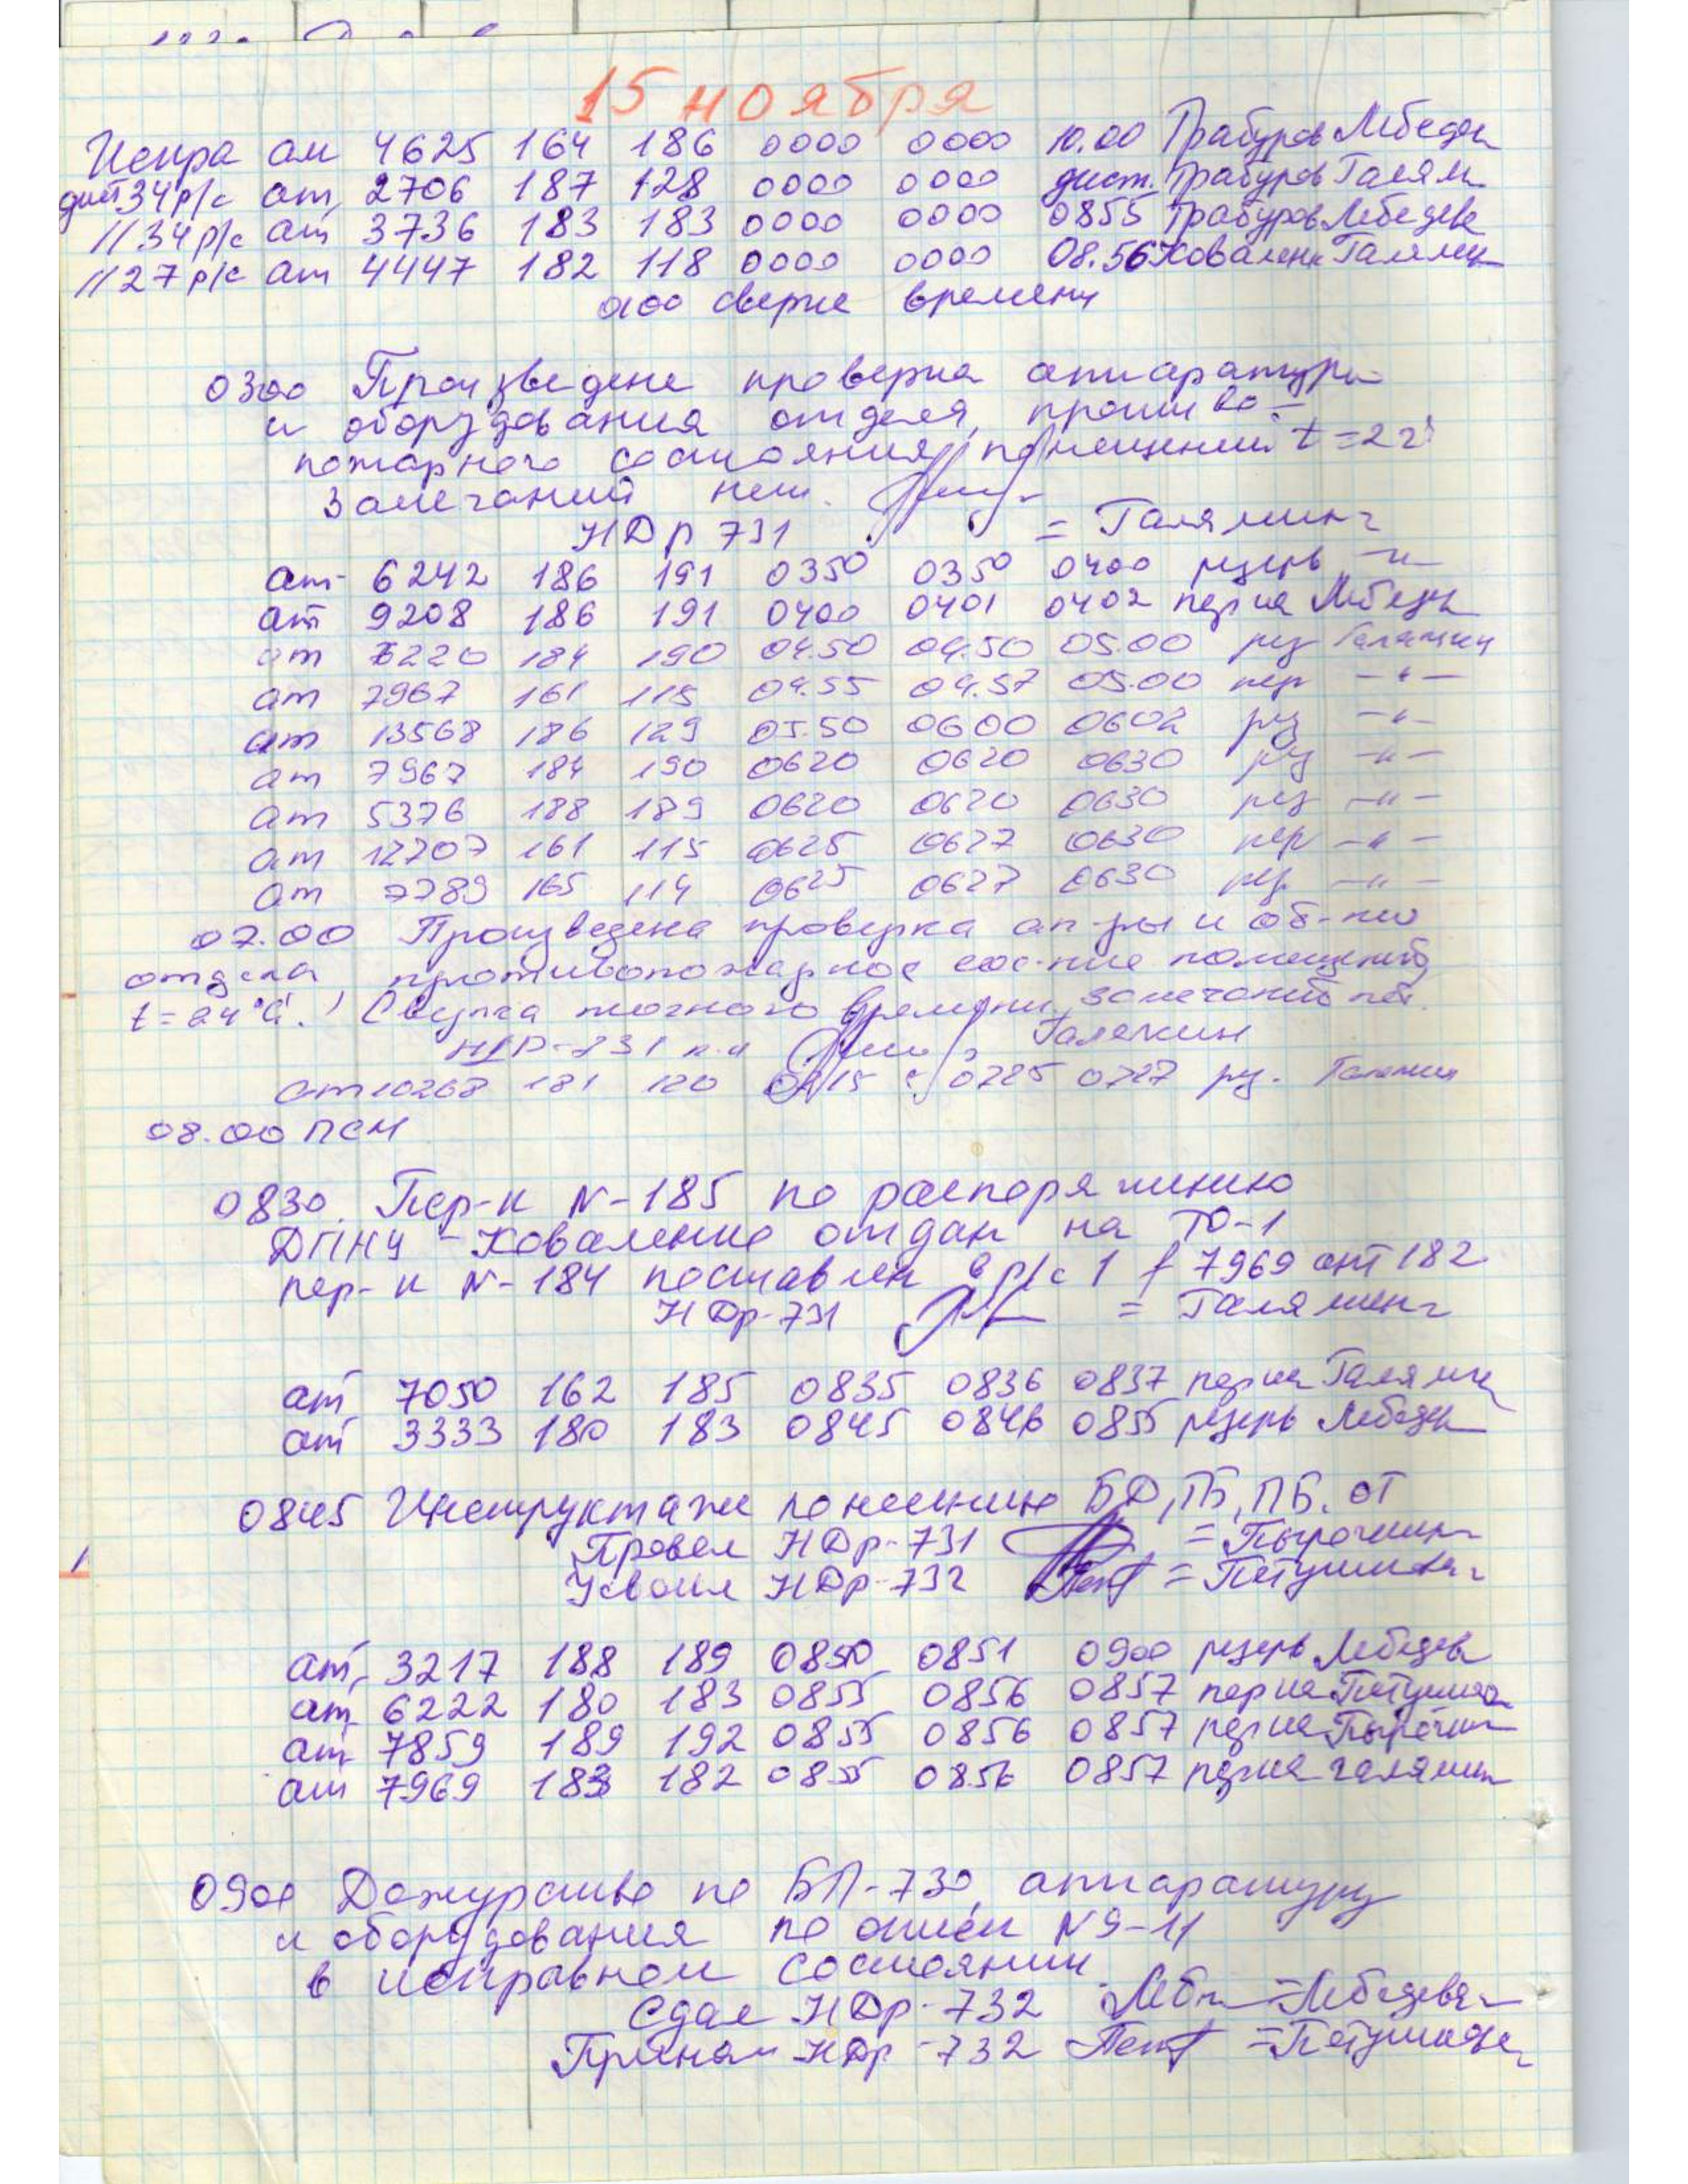 15 ноября
Искра ат 4625 164 186 0000 0000 10.00 Трабуров Лебедев
дист 34 р/с ат 2706 187 128 0000 0000 дист. Трабуров Галям
// 34 р/с ат 3736 183 183 0000 0000 0855 Трабуров Лебедев
// 27 р/с ат 4447 182 118 0000 0000 08.56 Коваленк Галямин
0100 сверка времени
0300 Произведена проверка аппаратуры
и оборудования отдела, противо-
пожарного состояния помещений t=22
Замечаний нет.
НДр 731 = Галямин=
ат 6242 186 191 0350 0350 0400 резерв -"-
ат 9208 186 191 0400 0401 0402 пер на Лебедев
ат 6220 184 190 04.50 04.50 05.00 рез Галямин
ат 7967 161 115 04.55 04.57 05.00 пер -"-
ат 13568 186 129 05.50 0600 0602 рез -"-
ат 7967 184 190 0620 0620 0630 рез -"-
ат 5376 188 189 0620 0620 0630 рез -"-
ат 12207 161 115 0625 0627 0630 пер -"-
ат 7789 165 114 0625 0627 0630 -"-
07.00 Произведена проверка ап-ры и об-ния
отдела, противопожарное сос-ние помещений
t=24°С. Сверка точного времени, замечаний нет.
НДР-731 Галямин
ат 10268 181 120 0715 0725 0727 рез. Галямин
08.00 ПСМ
0830. Пер-к N-185 по распоряжению
ДПНЧ - Коваленко отдан на ТО-1
пер-к N-184 поставлен в р/с 1 f 7969 ант 182
НДр-731 = Галямин=
ат 7050 162 185 0835 0836 0837 пер на Галямин
ат 3333 180 183 0845 0846 0855 резерв Лебедев
0845 Инструктаж по несению БД, ТБ, ПБ, ОТ
Провел НДр-731 = Пырочкин=
Усвоил НДр-732 = Петушкова=
ат 3217 188 189 0850 0851 0900 резерв Лебедев
ат 6222 180 183 0855 0856 0857 пер на Петушков
ат 7859 189 192 0855 0856 0857 пер на Пырочкин
ат 7969 183 182 0855 0856 0857 пер на Галямин
0900 Дежурство по БП-730, аппаратуру
и оборудования по описи N 9-11
в исправном состоянии
Сдал НДр-732 =Лебедева=
Принял НДр-732 =Петушкова=